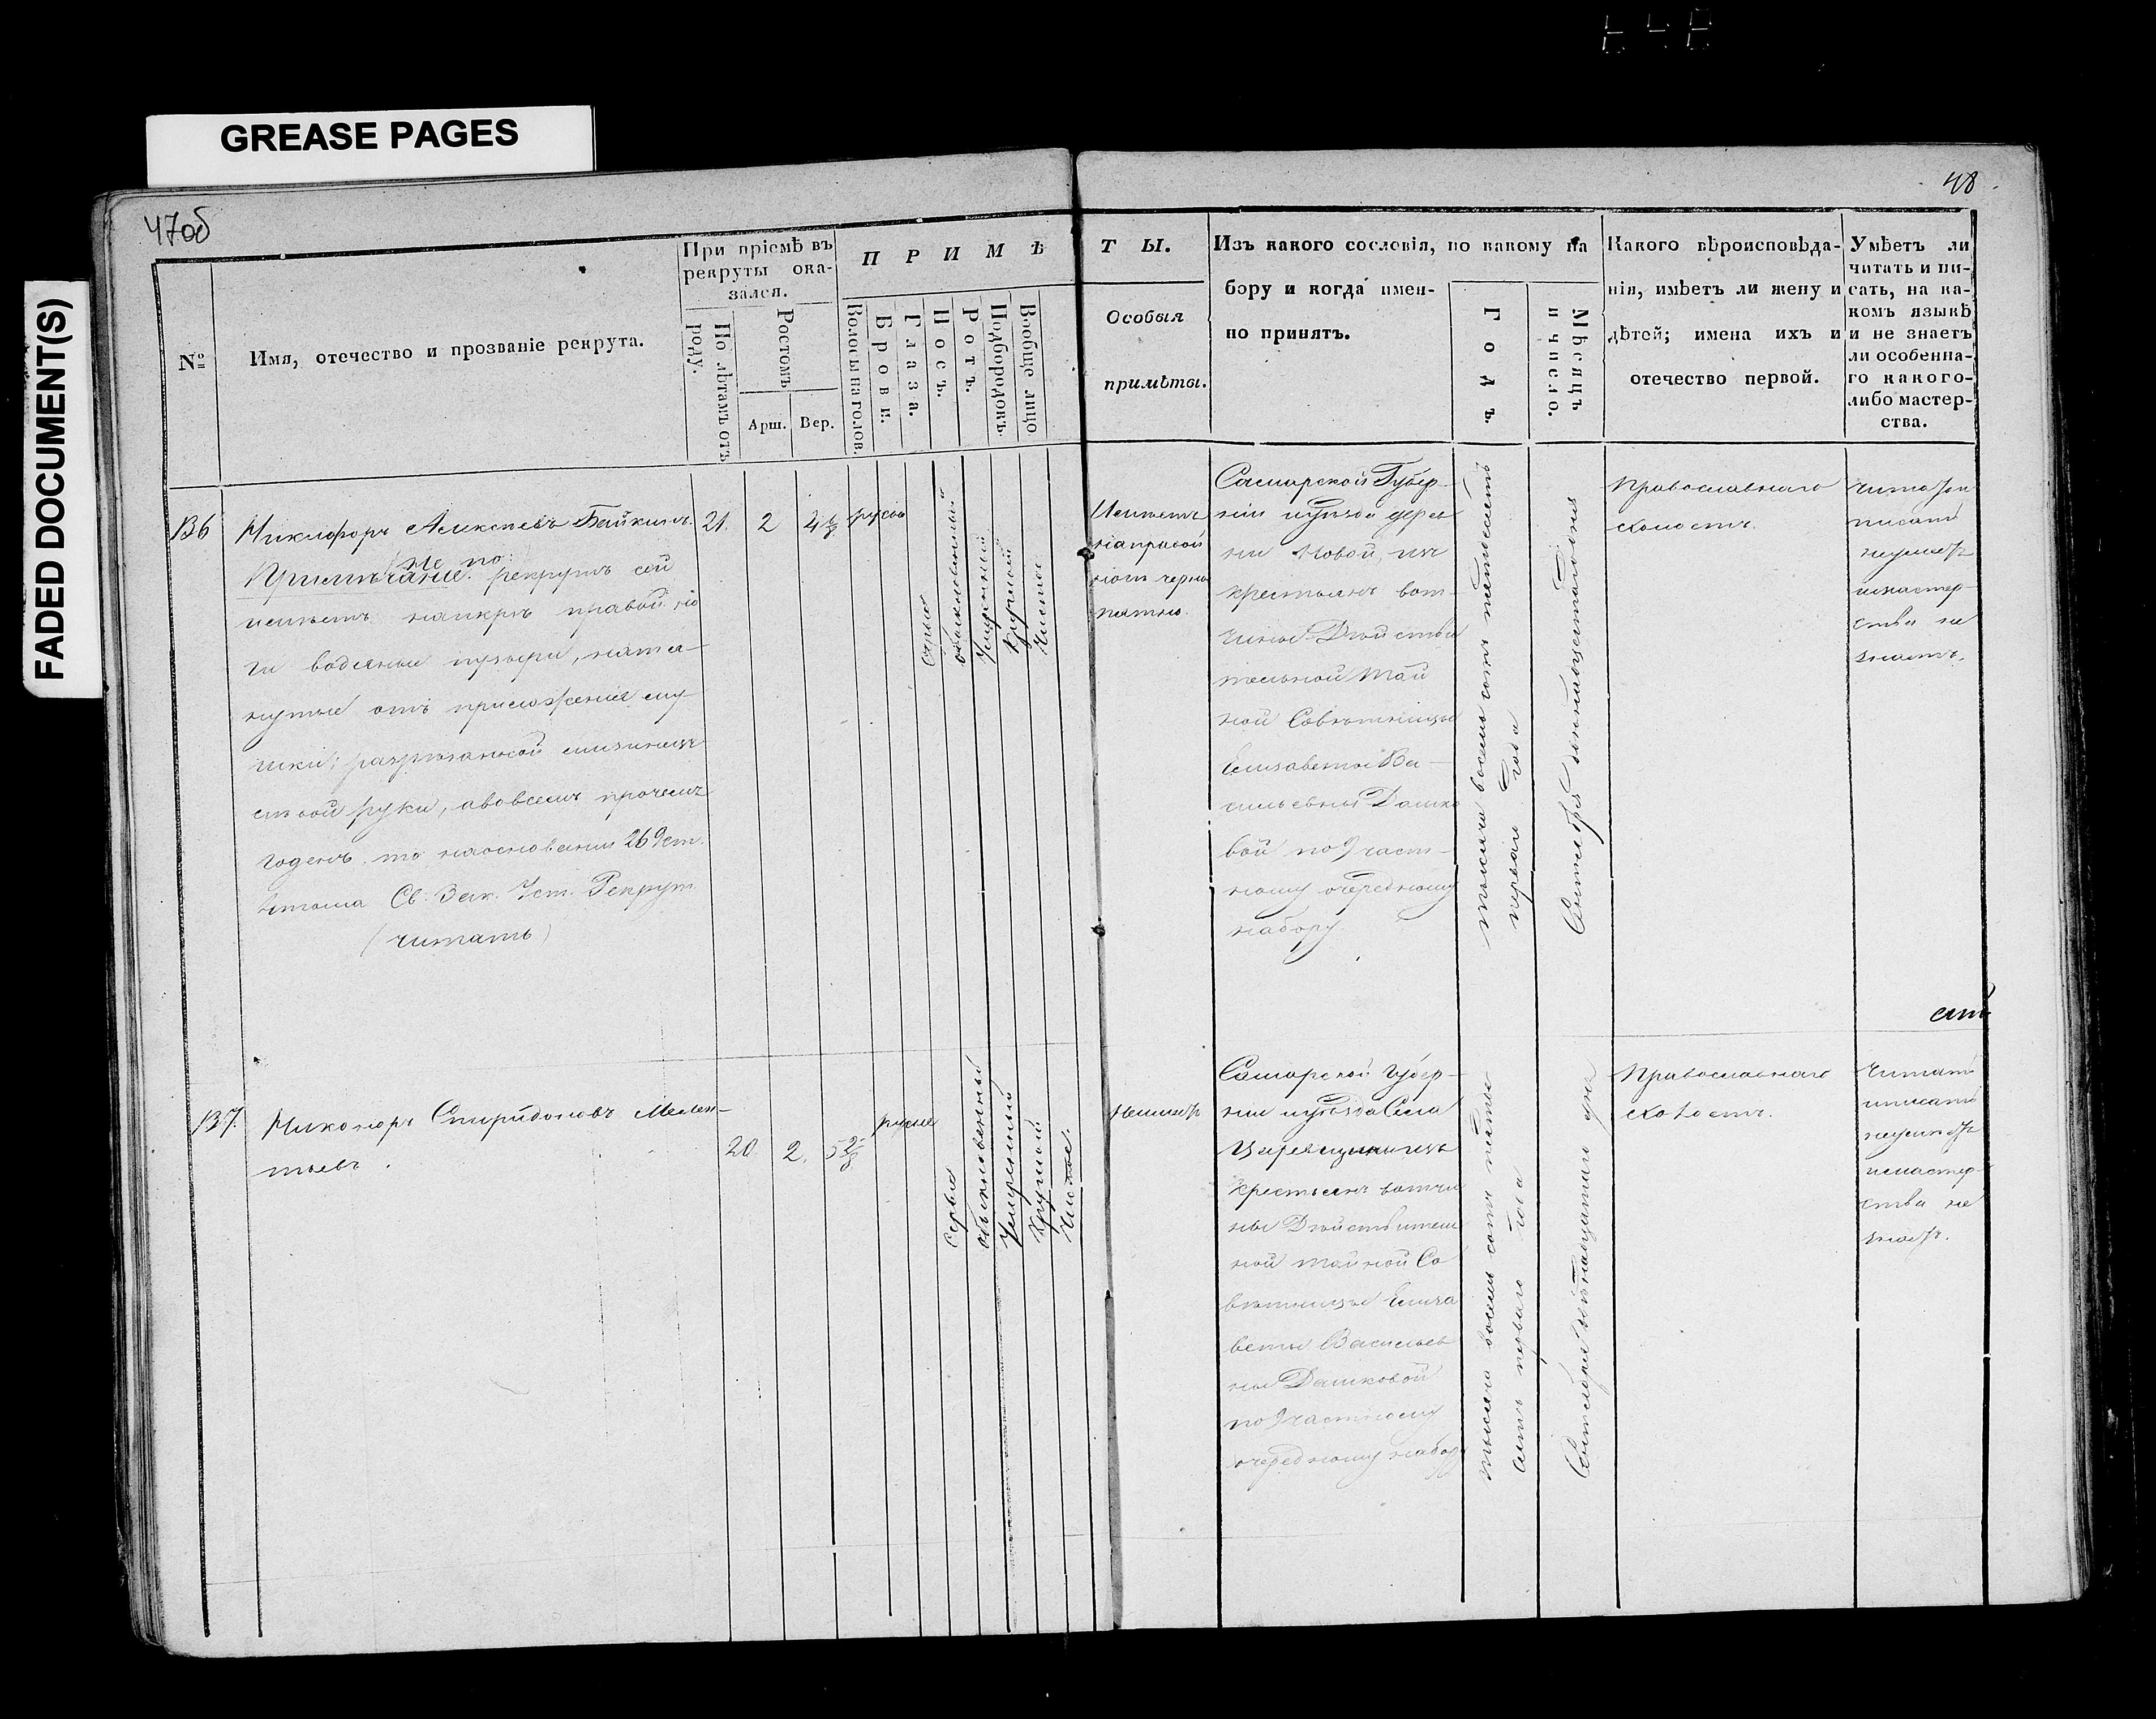 GREASE PAGES
FADED DOCUMENT(S)
47об
48
№
Имя, отечество и прозваніе рекрута.
При пріемѣ въ
рекруты ока-
зался.
По лѣтамъ отъ
роду.
Ростомъ
Арш.
Вер.
П Р И М Ѣ
Волосы на голов.
Брови.
Глаза.
Носъ.
Ротъ.
Подбородокъ.
Вообще лицо
Т Ы.
Особыя
примѣты.
Изъ какого сословія, по какому на
бору и когда имен-
но принятъ.
Годъ.
Мѣсяцъ
и число.
Какого вѣроисповѣда-
нія, имѣетъ ли жену и
дѣтей; имена ихъ и
отечество первой.
Умѣетъ ли
читать и пи-
сать, на ка-
комъ языкѣ
и не знаетъ
ли особенна-
го какого-
либо мастер-
ства.
136
Никифоръ Алексѣевъ Байкинъ.
Примѣчаніе. рекрутъ сей
имѣетъ наикрѣ правой но
ги водяные пузыри, натя-
нутые отъ приложенія му
шки;
руки, а во всемъ прочемъ
годенъ то на основаніи 269 ст.
4 тома Св. Зак. Уст. Рекрут.
(читать)
21.
2
4
русы
сѣрые
обыкновенный
Умѣренный
Круглой
Чистое
Имѣетъ
на правой
ноги черно
пятно.
Самарской Губер-
ніи и уѣзда дерев
ни Новой, изъ
крестьянъ вот-
чины Дѣйстви
тельной Тай
ной Совѣтницы
Елизаветы Ва-
сильевны Дашко
вой по 9 част-
ному очередному
набору.
тысяча восемь сотъ пятьдесятъ
перваго года
Сентября дня
Православнаго
холостъ.
читать и
писать
неумѣетъ
и мастер-
ства не
знаетъ.
137.
Никоноръ Спиридоновъ Мелен-
тьевъ.
20.
2.
5
русые
Серые
обыкновенный
Умѣренный
Круглой
Чистое.
Неимѣетъ
Самарской Губер-
ніи и уѣзда Села
Царевщины изъ
крестьянъ вотчи
ны Дѣйствитель
ной Тайной Со
вѣтницы Елиза
веты Васильев
ны Дашковой
по 9 частному
очередному набору
тысяча восемь сотъ пятьде
сятъ перваго года
Сентября пятнадцатаго дня
Православнаго
холостъ.
Читать
и писать
неумѣетъ
и мастер-
ства не
знаетъ.